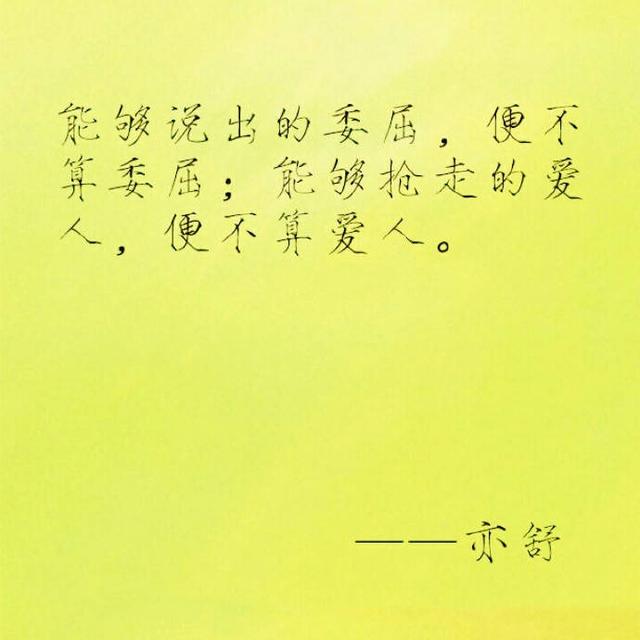 能够说出的委屈，便不
算委屈；能够抢走的爱
人，便不算爱人。
——亦舒